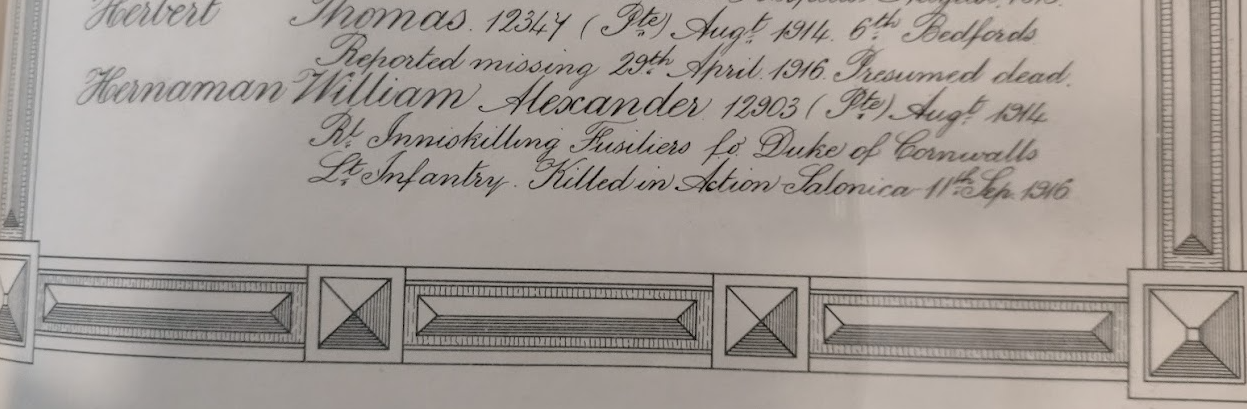 Herbert Thomas. 12347 (Pte) Augt 1914. 6th Bedfords
Reported missing 29th April. 1916. Presumed dead.
Hernaman William Alexander. 12903 (Pte) Augt 1914
Rl. Inniskilling Fusiliers fo. Duke of Cornwalls
Lt. Infantry. Killed in Action Salonica 11th Sep. 1916